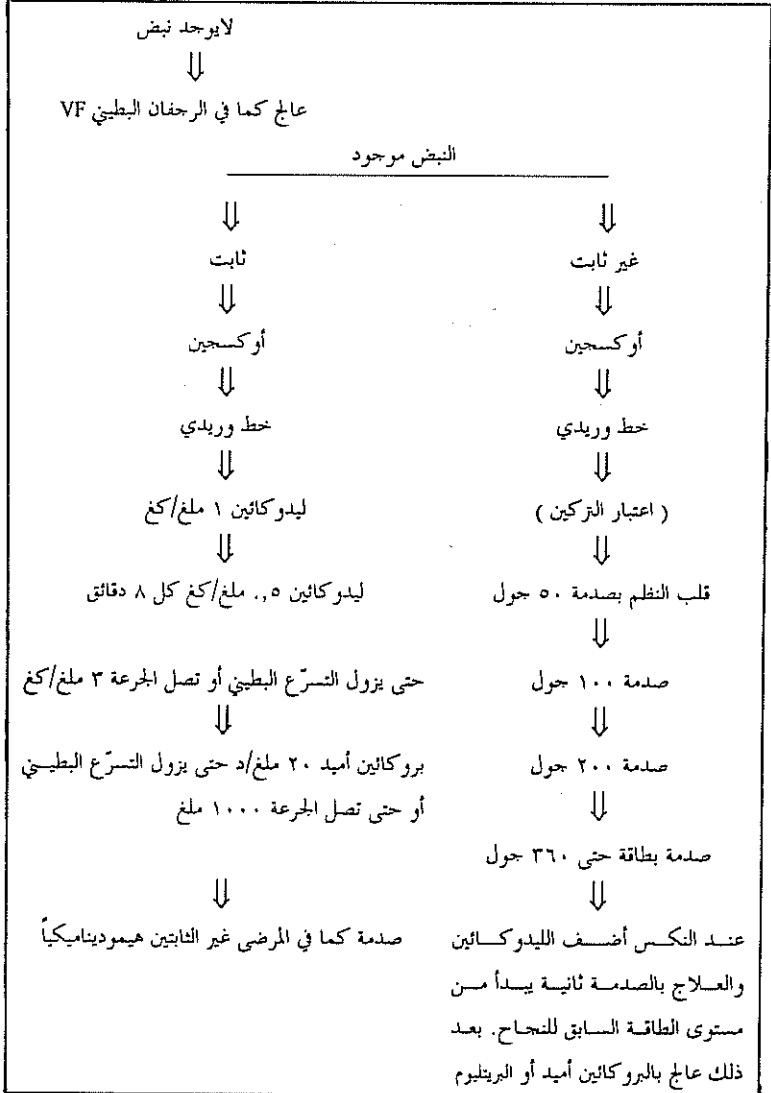 لايوجد نبض
⇓
عالج كما في الرجفان البطيني VF
النبض موجود
غير ثابت
⇓
أوكسجين
⇓
خط وريدي
⇓
( اعتبار التركين )
⇓
قلب النظم بصدمة ٥٠ جول
⇓
صدمة ١٠٠ جول
⇓
صدمة ٢٠٠ جول
⇓
صدمة بطاقة حتى ٣٦٠ جول
⇓
عند النكس أضف الليدوكائين
والعلاج بالصدمة ثانية يبدأ من
مستوى الطاقة السابق للنجاح. بعد
ذلك عالج بالبروكائين أميد أو البريتليوم
ثابت
⇓
أوكسجين
⇓
خط وريدي
⇓
ليدوكائين ١ ملغ/كغ
⇓
ليدوكائين ٠,٥ ملغ/كغ كل ٨ دقائق
حتى يزول التسرّع البطيني أو تصل الجرعة ٣ ملغ/كغ
⇓
بروكائين أميد ٢٠ ملغ/د حتى يزول التسرّع البطيني
أو حتى تصل الجرعة ١٠٠٠ ملغ
⇓
صدمة كما في المرضى غير الثابتين هيموديناميكياً